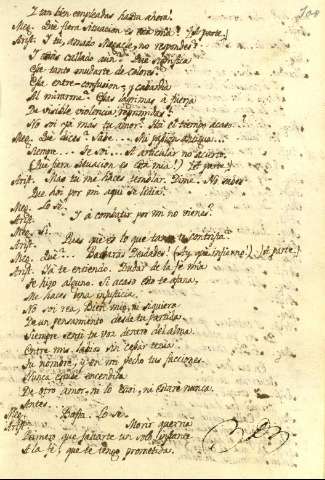 Y tan bien empleadas hasta ahora!
Meg. Què fiera situacion es esta mia! (Aparte.)
Arist. Y tu, amado Megacle, no respondes?
Y estás callado aun? Què significa
Ese tanto mudarte de colores?
Ese entre confusion, y cobardia
Al mirarme? Esas lagrimas à fuerza
De visible violencia reprimidas?
No soi ya mas tu amor? Hà el tiempo acaso?
Meg. Què dices? Yo... Mi pasion antigua...
Siempre... Se... Soi... El articular no acierto.
(Què fiera situacion es esta mia!) (Aparte.)
Arist. Mas tu me haces temblar. Dime. No sabes
Que hoi por mi aqui se lidia?
Meg. Lo sé.
Arist. Y à combatir por mi no vienes?
Meg. Si.
Arist. Pues què es lo que tanto te contrista?
Meg. Què?... Barbaras Deidades! (Ay què infierno!) (Aparte.)
Arist. Yà te entiendo. Dudar de la fe mia
Te hizo alguno. Si acaso esto te afana,
Me haces una injusticia.
No soi rea, Bien mio, ni siquiera
De un pensamiento desde tu partida.
Siempre senti tu voz dentro del alma.
Entre mis labios sin cesar tenia
Tu nombre, y en mi pecho tus facciones.
Nunca estube encendida
De otro amor, ni lo estoi, ni estaré nunca.
Antes...
Meg. Basta. Lo se.
Arist. Morir querria
Primero que faltarte un solo instante
A la fe, que te tengo prometida.